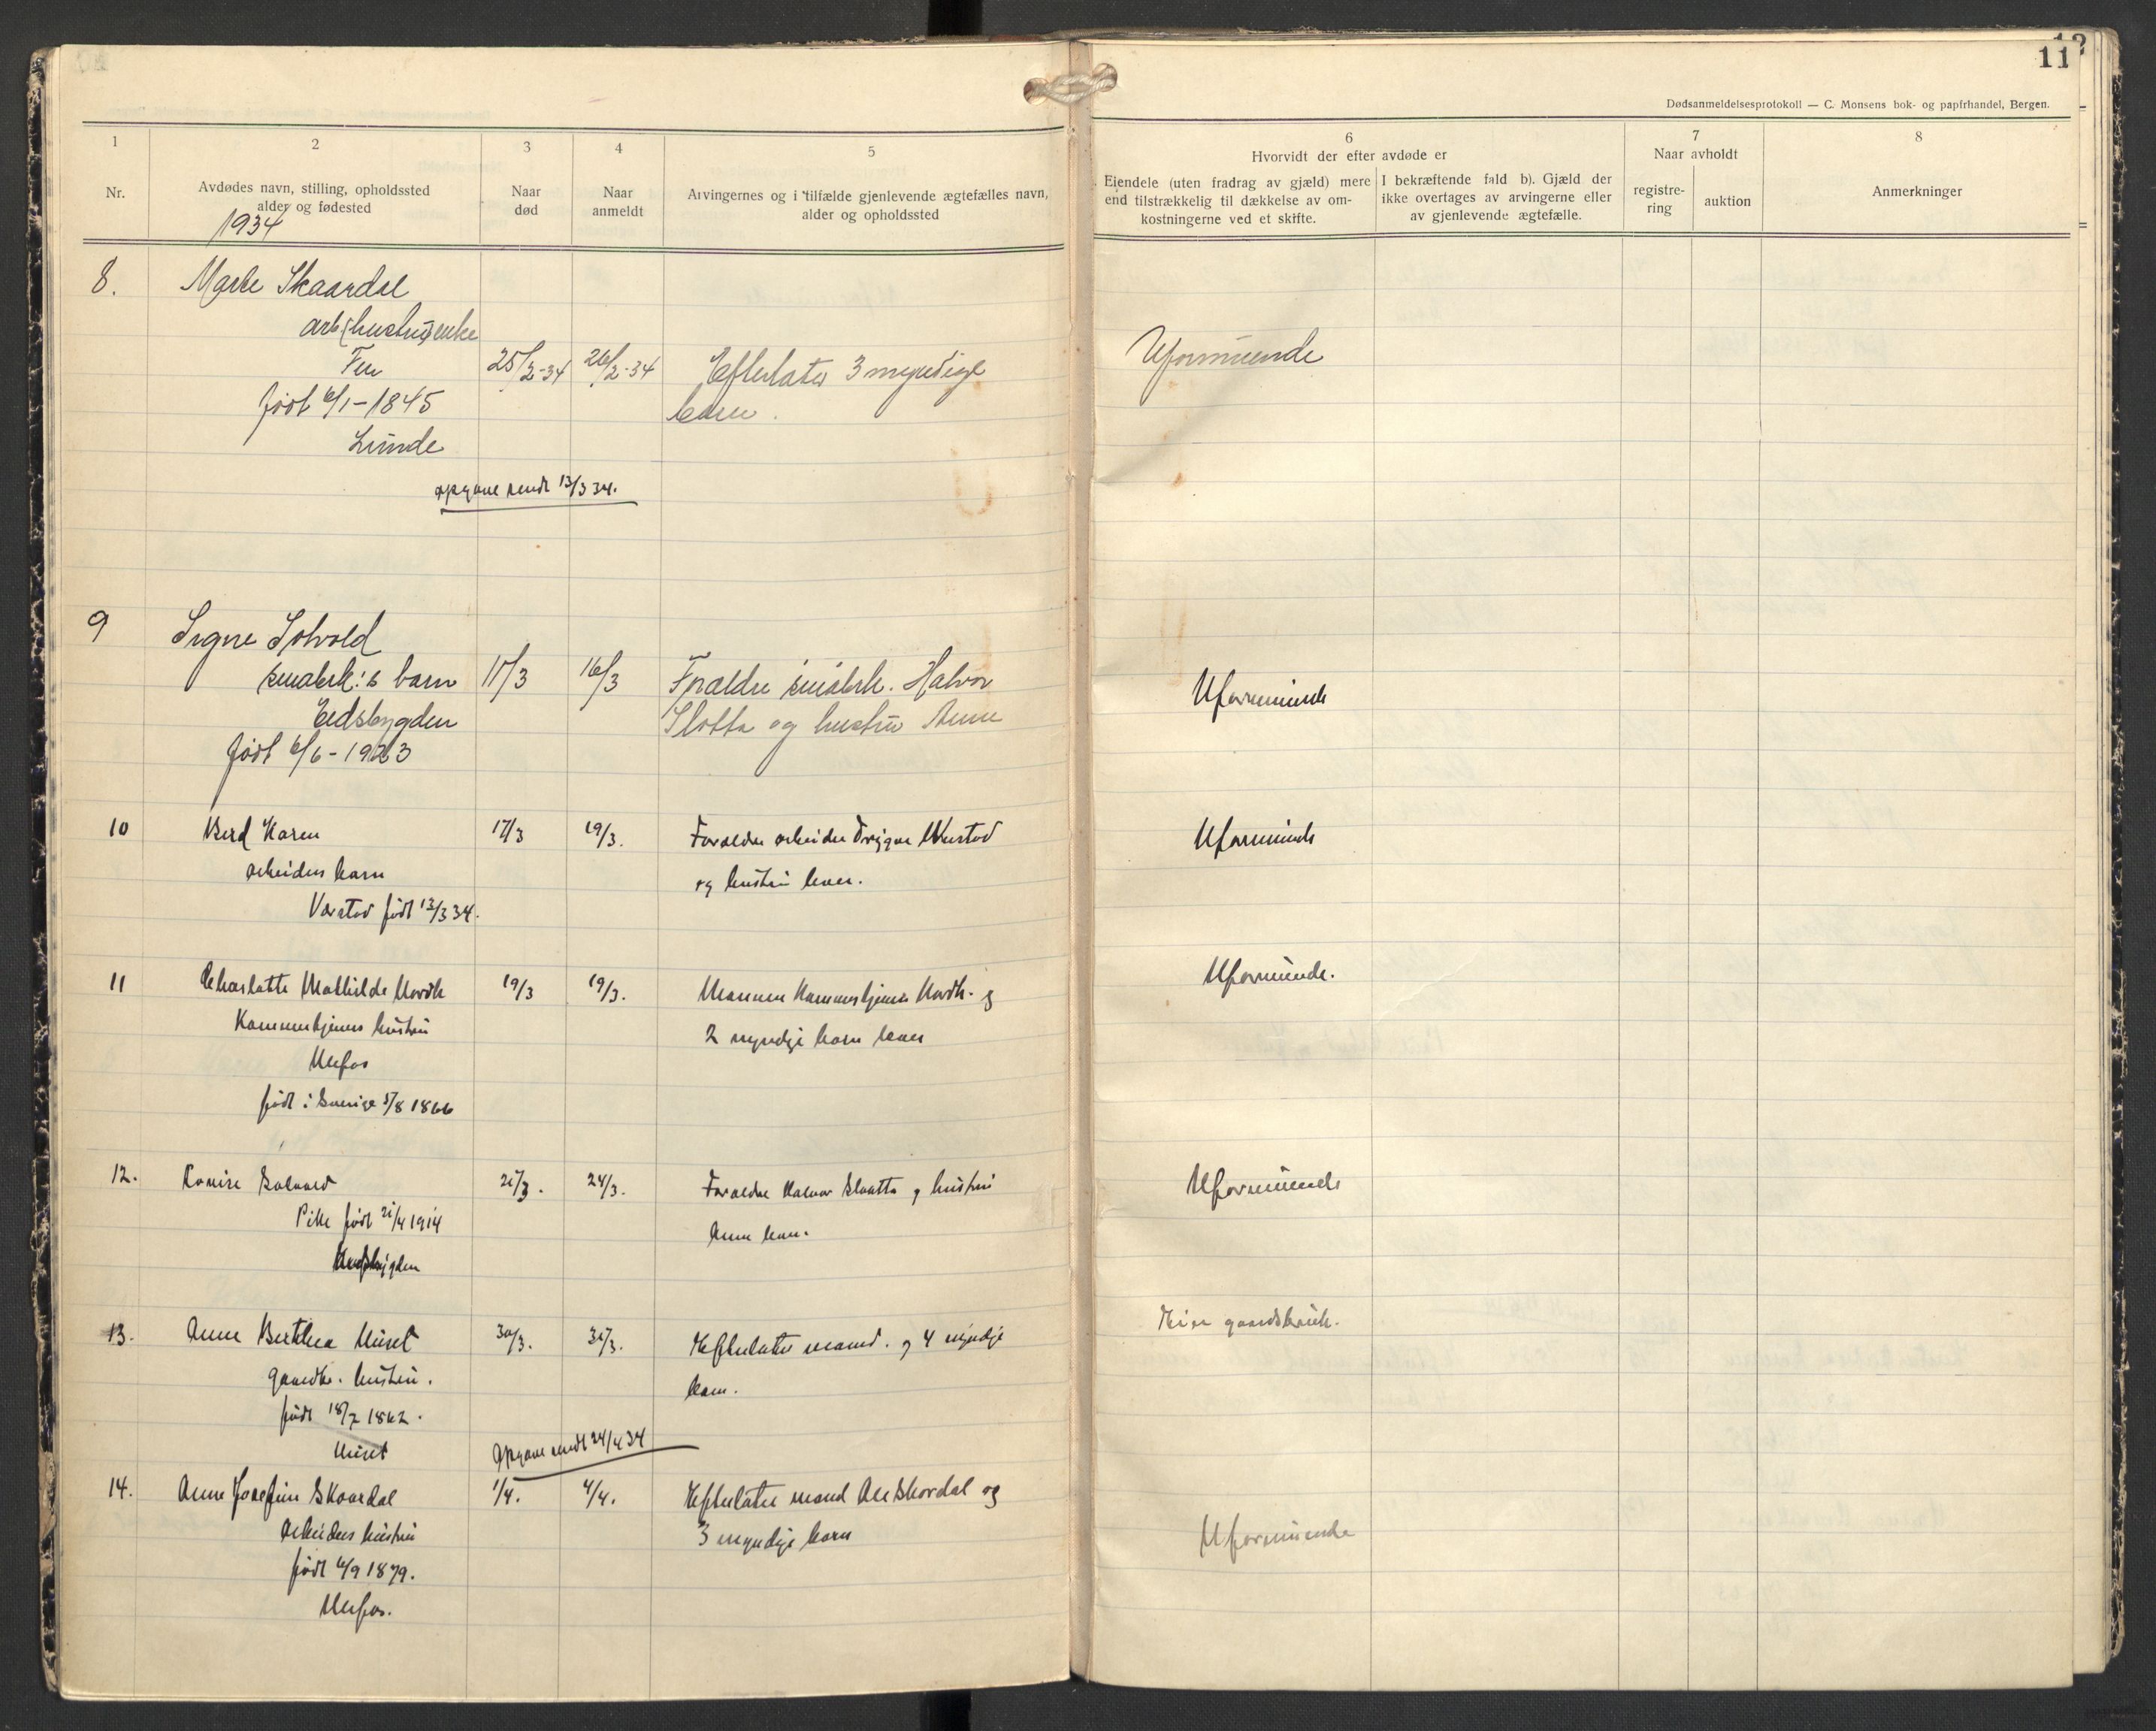 12
11
Dødsanmeldelsesprotokoll — C. Monsens bok- og papirhandel, Bergen.
1
Nr.
2
Avdødes navn, stilling, opholdssted
alder og fødested
1934
3
Naar
død
4
Naar
anmeldt
5
Arvingernes og i tilfælde gjenlevende ægtefælles navn,
alder og opholdssted
6
Hvorvidt der efter avdøde er
Eiendele (uten fradrag av gjæld) mere
end tilstrækkelig til dækkelse av om-
kostningerne ved et skifte.
I bekræftende fald b). Gjæld der
ikke overtages av arvingerne eller
av gjenlevende ægtefælle.
7
Naar avholdt
registre-
ring
auktion
8
Anmerkninger
8.
Marte Skaardal
arb (hustru) enke
Fen
født 6/1-1845
Lunde
25/2-34
26/2-34
Efterlater 3 myndige
barn.
Uformuende
opgave sendt 13/3 34.
9
Signe Solvold
småbrk:s barn
Eidsbygden
født 6/6-1923
11/3
16/3
Forældre småbrk. Halvor
Slotta og hustru Anne
Uformuende
10
Berd Karen
arbeiders barn
Værstad født 13/3 34.
17/3
19/3.
Forældre arbeider Trygve Værstad
og hustru lever.
Uformuende
11
Charlotte Mathilde Nordh
Kammertjeners hustru
Ulefos
født i Sverige 5/8 1866
19/3
19/3.
Mannen Kammertjener Nordh. og
2 myndige barn lever
Uformuende.
12.
Louise Solvold
Pike født 21/4 1914
Eidsbygden
21/3.
24/3.
Forældre Halvor Slaatta og hustru
Anne lever.
Uformuende
13.
Anne Berthea Huset
gaardbr. hustru.
født 18/7 1862.
Huset
30/3.
31/3.
Efterlater mand. og 4 myndige
barn.
Eier gaardsbruk.
Opgave sendt 24/4 34
14.
Anne Josefine Skaardal
Arbeiders hustru
født 6/9 1879.
Ulefos.
1/4.
4/4.
Efterlater mand Ole Skordal og
3 myndige barn
Uformuende